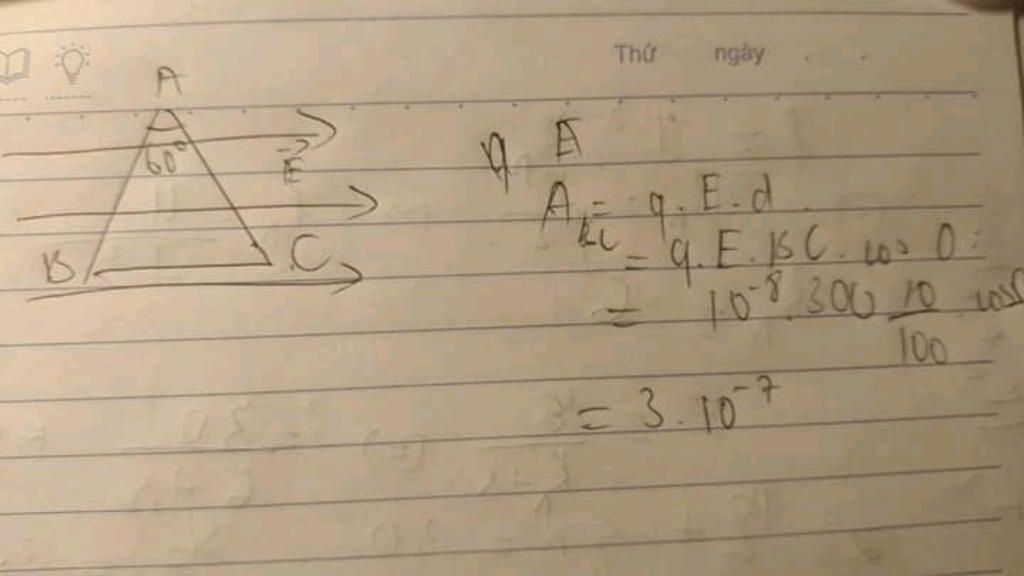 Thứ ngày
A
60°
E
B
C
q E
A_BC = q.E.d
= q.E.BC.cos 0
= 10⁻⁸.300 10/100 .cos
= 3.10⁻⁷